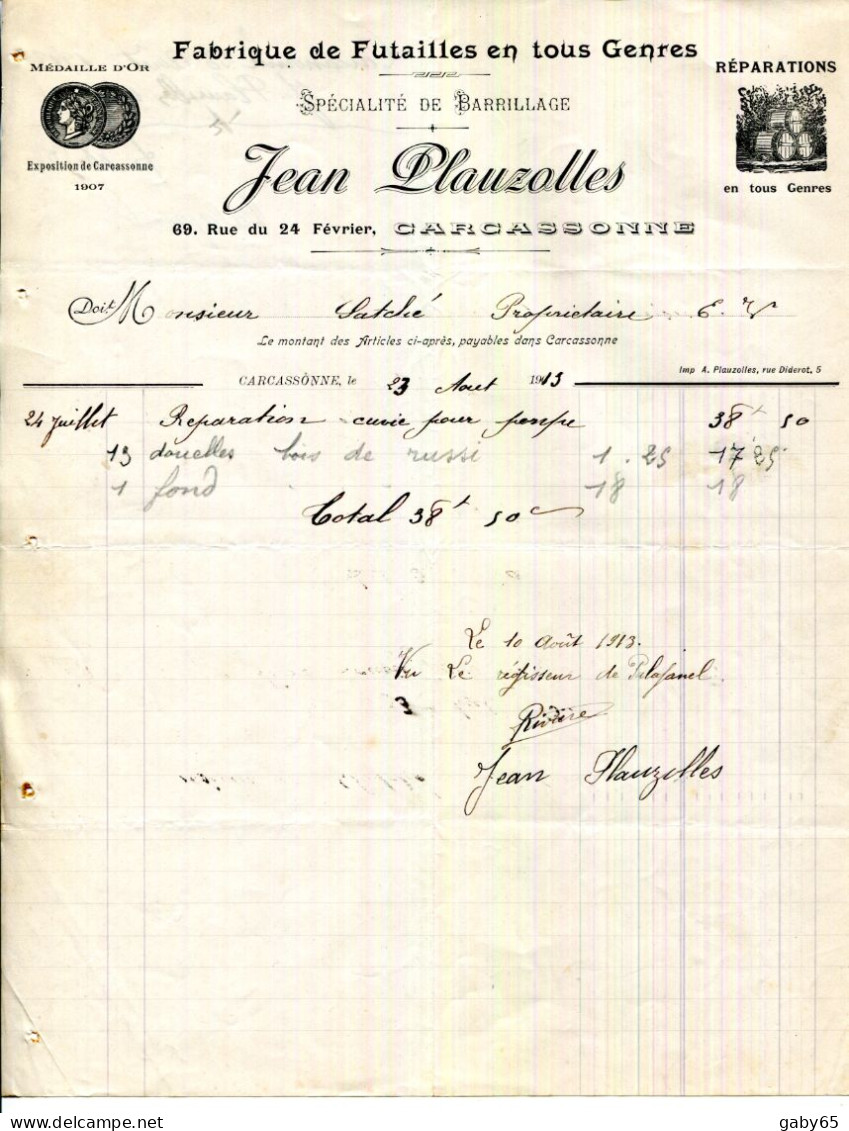 Fabrique de Futailles en tous Genres
MÉDAILLE D'OR
RÉPARATIONS
SPÉCIALITÉ DE BARRILLAGE
Exposition de Carcassonne
1907
Jean Plauzolles
en tous Genres
69. Rue du 24 Février, CARCASSONNE
Doit Monsieur Satché Propriétaire E. V
Le montant des Articles ci-après, payables dans Carcassonne
Imp A. Plauzolles, rue Diderot, 5
CARCASSONNE, le 23 Aout 1913
24 Juillet Reparation cuvie pour pompe 38 f 50
13 douelles bois de russi 1.25 17 25
1 fond 18 18
Total 38 f 50 c
Le 10 août 1913.
Vu Le régisseur de
Rivière
Jean Plauzolles
gaby65